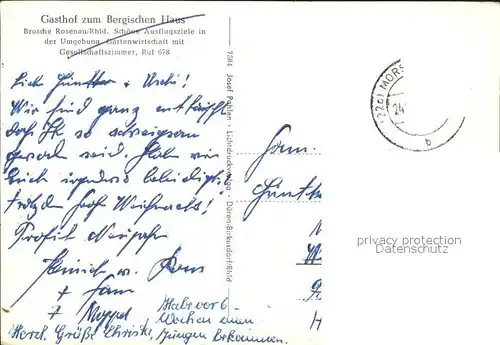 Gasthof zum Bergischen Haus
Brosche Rosenau/Rhld. Schöne Ausflugsziele in
der Umgebung. Gartenwirtschaft mit
Gesellschaftszimmer, Ruf 678
Lieber Günther + Uschi!
Wir sind ganz enttäuscht
daß Ihr so schweigsam
geword. seid. Haben wir
Euch irgendwo beleidigt?
trotzdem froh Weihnacht!
Prosit Neujahr
Heinrich u.
+ Fam
+ Moppel
Habe vor 6
Wochen einen
Herzl. Grüße Christl, Jungen bekommen.
7584 Josef Lichtdruck Düren-Birkesdorf/Rhld
Fam.
Günth
(22c) MORS
24
b
privacy protection
watermark